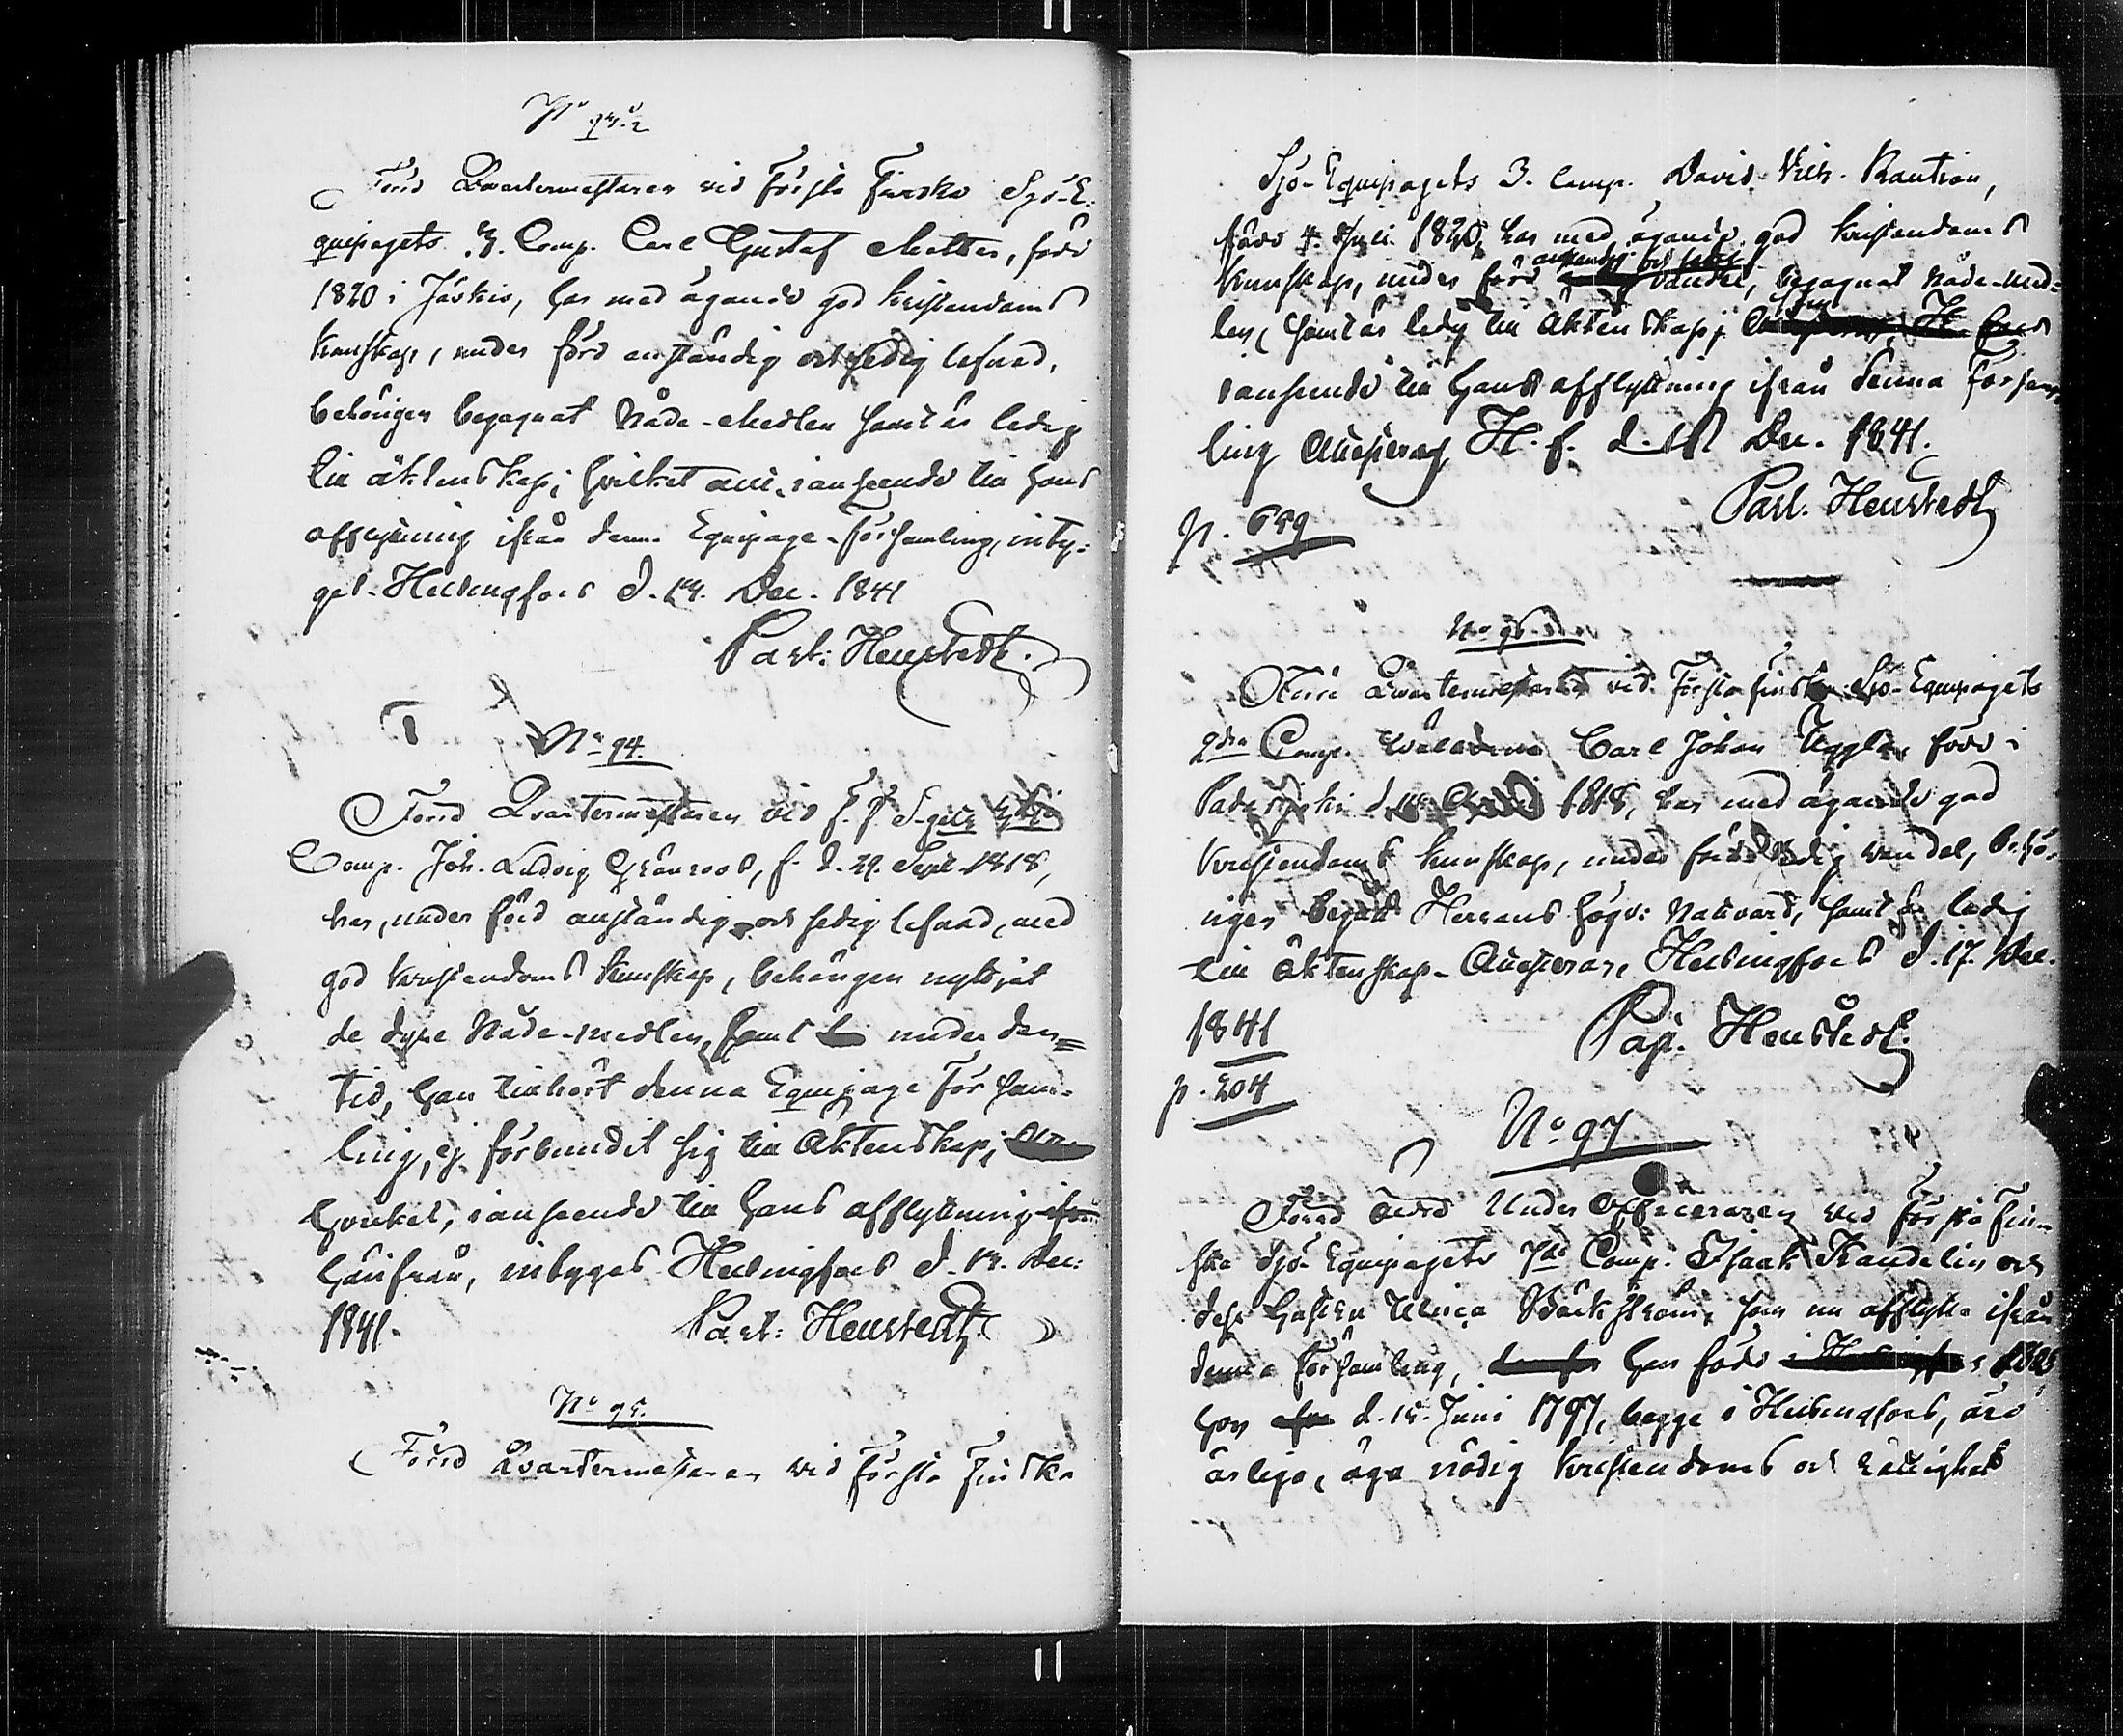 Förd Quartermästaren vid Första Finska Sjö-E-
quipagets 3. Comp. Carl Gustaf, född
1820 i Jäskis, har med ägande god kristendoms
kunskap, under förd anständig och sedig lefnad,
behörigen begagnat Nåde-Medlen samt är ledig
till äktenskap; hvilket allt, i anseende till hans
afflyttning ifrån denna Equipage-Församling, inty-
gas. Helsingfors d. 14. Dec. 1841
Past: Heurstedt.
No 94.
Förd Quartermästaren vid F. F. S.
Comp. Joh. Ludvig Grönroos, f. d. 29. Sept. 1818,
har, under förd anständig och sedig lefnad, med
god kristendoms kunskap, behörigen nyttjat
de dyre Nåde-medlen, samt under den
tid, han tillhört denna Equipage Försam-
ling, ej förbundit sig till Äktenskap;
hvilket, i anseende till hans afflyttning
härifrån, intygas Helsingfors d. Dec:
1841. Past: Heurstedt.
No 95.
Förd Quartermästaren vid Första Finska
Sjö-Equipagets 3. Comp. David Rautian,
född 4. Juli 1820, har med ägande god kristendoms
anständig och sedig
kunskap, under förd vandel, begagnat Nåde-Med-
len, samt är ledig till Äktenskap;
i anseende till hans afflyttning ifrån denna Försam-
ling attesteras H. f. d. Dec. 1841.
Past. Heurstedt
p. 659
No 96
Förd Quartermästaren vid Första Finska Sjö-Equipagets
2dra Comp. Carl Johan Uggla, född i
Padasjoki d. 1818, har med ägande god
kristendoms kunskap, under förd sedig vandel, behö-
rigen begått Herrans högv: Nattvard, samt är ledig
till äktenskap. Attesteras, Helsingfors d. 17. Dec.
1841 Past. Heurstedt.
p. 204
No 97
Förd Under Officeraren vid Första Fin-
ska Sjö-Equipagets 7de Comp. Isaak Kandelin och
dess hustru Ulrica Bäckström, som nu afflytta ifrån
denna Församling, han född
hon d. 15. Juni 1797, begge i Helsingfors, äro
ärliga, äga nödig kristendoms och